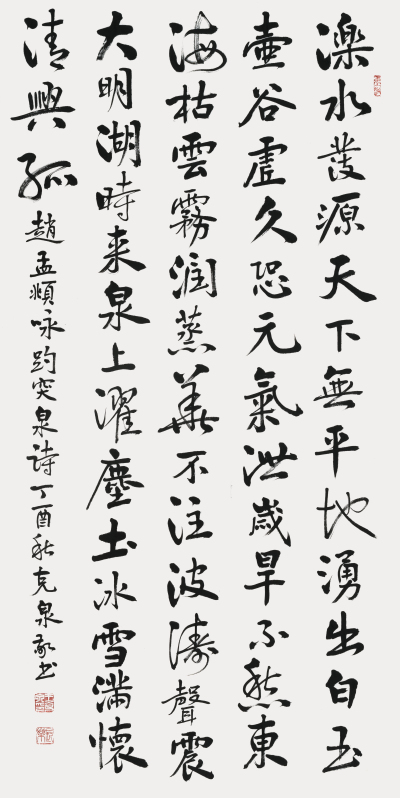 濼水發源天下無平地湧出白玉
壺谷虛久恐元氣泄歲旱不愁東
海枯雲霧潤蒸華不注波濤聲震
大明湖時来泉上濯塵土冰雪滿懷
清興孤 趙孟頫咏趵突泉詩丁酉秋克泉敬书